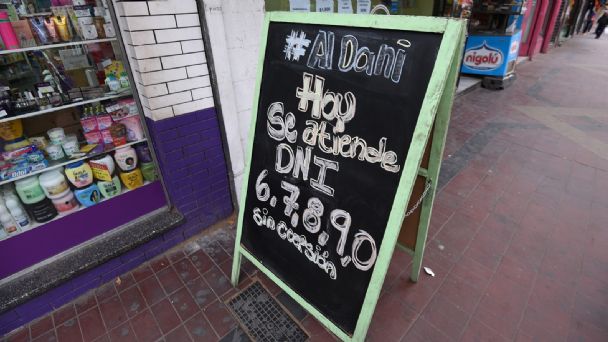 #Al Dani
Hoy
Se atiende
DNI
6,7,8,9,0
sin coersión
nigolú